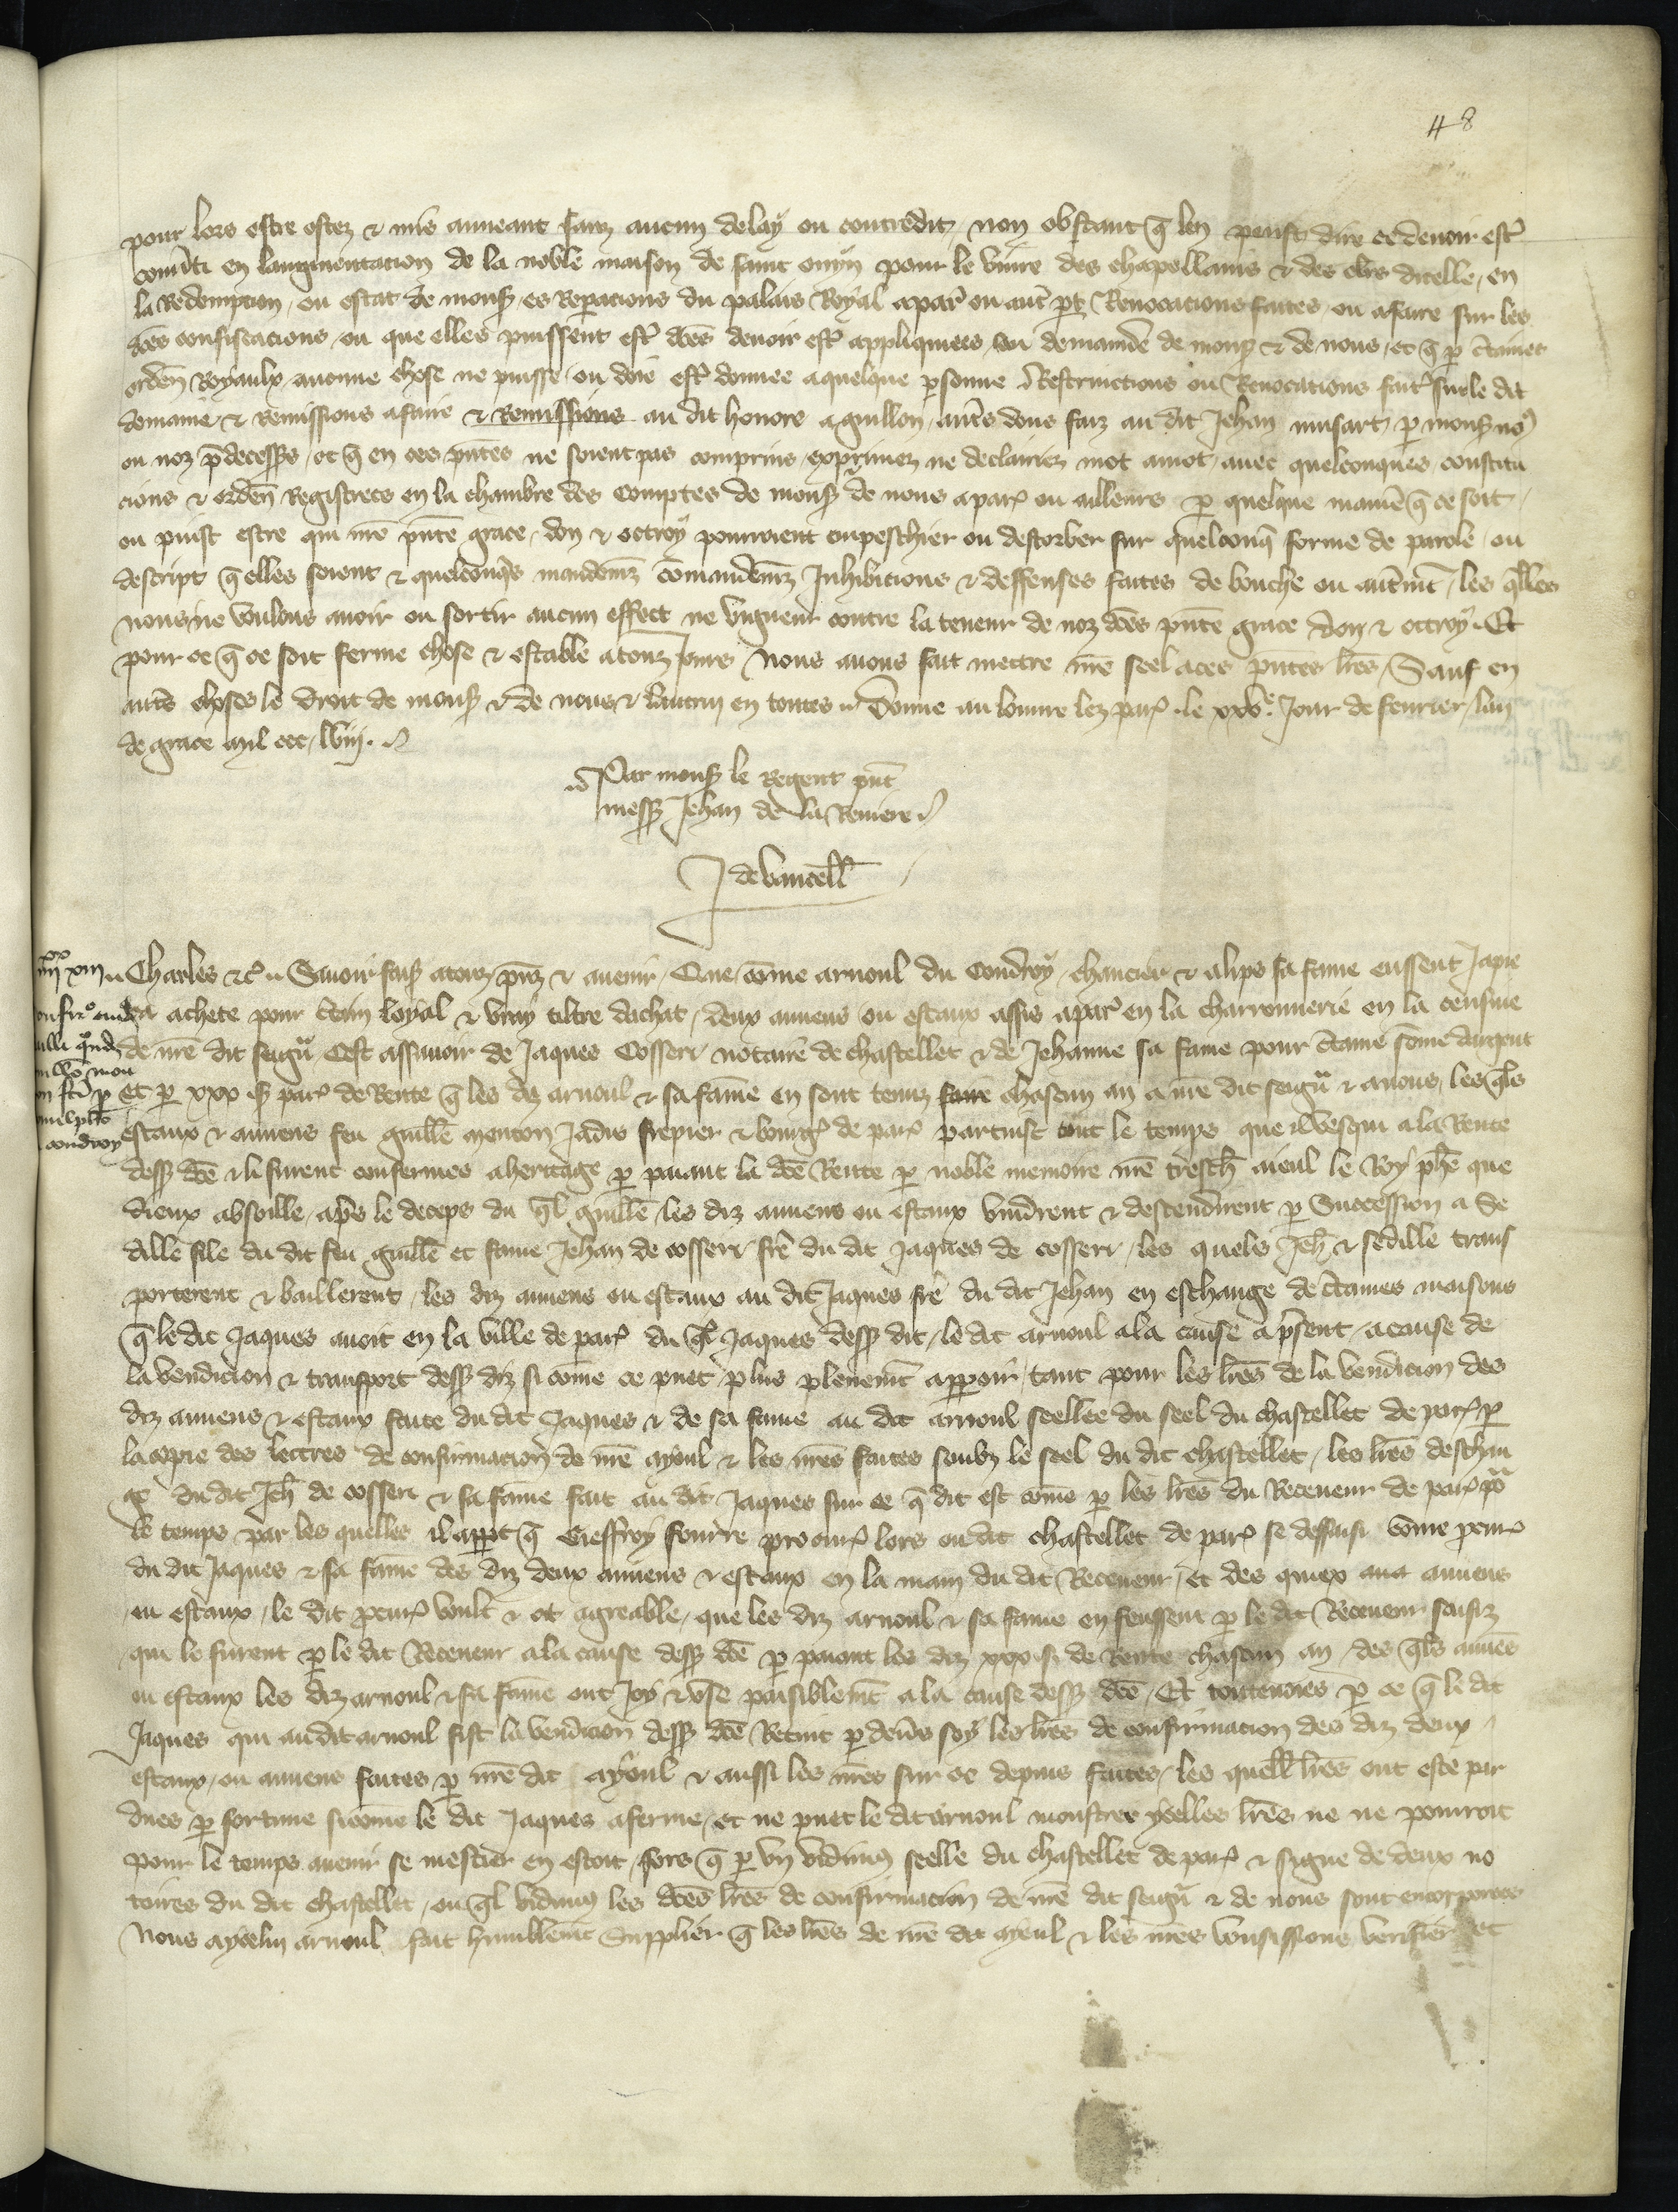 48
pour lors estre ostez & mis anneant sanz aucun delay ou contredit, non obstant q̄ len peust dire ce devoir estr̄
conv̄ti en laugmentacion de la noble maison de saint ouyn pour le vivre des chapellains & des cl̄rs dicelle, en
la Redempcion, ou estat de mons͛ es Repacions du palais Royal a par͛ ou aut̄ pt Revocacions faites, ou afaire sur les
dc̄es confiscacions, ou que elles puissent estr̄ dc̄es devoir estr̄ appliquiees ou demaine de mons͛ & de nous, et q̄ p c̄taines
orden̄ Royaulx aucune chose ne puisse ou doie estr̄ donnee a quelque psonne Restrinctions ou Revocacions fait͛ sur le dit
domaine & Remissions afaire & Remissions au dit honore aguillon, autr̄s dons faiz au dit Jehan musart, p mons͛ no͛
ou noz p̄decess͛s, et q̄ en ces pn̄tes ne soient pas comprins exprimez ne declairiez mot amot, avec quelconques constitu
cions & orden̄ Registrees en la chambre des Comptes de mons͛ de nous a par͛ ou ailleurs p quelque manie͛ q̄ ce soit,
ou puist estre qui nr̄e pn̄te grace, don & octroy pourroient enpeschier ou destorber sur quelconq̄ forme de parole, ou
descript q̄ elles soient & quelconq̄s mandemz̄ com̄andemz̄ Inhibicions & deffenses faites de bouche ou autrem̄t, les q̄lles
nous ne voulons avoir ou sortir aucun effect ne vigueur contre la teneur de noz dc̄es pn̄te grace don & octroy. Et
pour ce q̄ ce soit ferme chose & estable a touz Jours Nous avons fait mettre nr̄e seel a ces pn̄tes lr̄es, Sauf en
autr̄s choses le droit de mons͛ & de nous & lautruy en toutes. Donne au louvre lez par͛ le xxvᵉ. Jour de fevrier, lan
de grace mil ccc, lviij.
Par mons͛ le Regent pn̄t
mess͛ Jehan de la Riviere
J de vaucell̄
iiijˣˣ xiij
Charles &c͛ Savoir fais͛ a touz, pn̄z & avenir, Que, com̄e arnoul du Coudroy, chancier & alips sa fame eussent Japie
ca achete pour c̄tain loyal & vray tiltre dachat, deux auvens ou estaux assis a par͛ en la charronnerie en la censive
de nr̄e dit seign̄ Cest assavoir de Jaques Cosserr notaire de chastellet & de Jehanne sa fame pour c̄taine som̄e dargent
et p xxx s͛ par͛ de Rente q̄ les diz arnoul & sa fame en sont tenuz faire chascun an a nr̄e dit seign̄ & a nous, les q̄ls
estaux & auvens feu guill̄e menton Jadis frepier & bourg͛ de par͛ partuist tout le temps que il vesqui a la Rente
dess͛ dc̄e & li furent confermes a heritage p paiant la dc̄e Rente p noble memoire nr̄e tresch̄ aieul le Roy ph̄e que
dieux absoille, ap̄s le deceps du q̄l guill̄e, les diz auvens ou estaux vindrent & descendirent p Succession a Se
dille file du dit feu guill̄e et fame Jehan de cosserr fr̄e du dit Jaques de cosserr, les quels Jeh̄ & sedille trans
porterent & baillerent, les diz auvens ou estaux au dit Jaques fr̄e du dit Jehan en eschange de c̄taines maisons
q̄ le dit Jaques avoit en la ville de par͛ du q̄l Jaques dess͛ dit, le dit arnoul a la cause a p̄sent, a cause de
la vendicion & transport dess͛ diz si com̄e ce puet plus plenem̄t apparoir, tant pour les lr̄es de la vendicion des
diz auvens & estaux faite du dit Jaques & de sa fame au dit arnoul seellee du seel du chastellet de par͛ p
la copie des lettres de confirmacion de nr̄e ayoul & les nr̄es faites soubz le seel du dit chastellet, les lr̄es deschan
ge du dit Jeh̄ de cosserr & sa fame fait au dit Jaques sur ce q̄ dit est com̄e p les lr̄es du Receveur de par͛ po͛
le temps par les quelles il appt q̄ Gieffroy fourre procur͛ lors ou dit chastellet de par͛ se dessaisi com̄e procur͛
du dit Jaques & sa fame des diz deux auvens & estaux en la main du dit Receveur, et des quiex auvens
ou estaux, le dit procur͛ voult & ot agreable, que les diz arnoul & sa fame en feussent p le dit Receveur saisiz
qui le furent p le dit Receveur a la cause dess͛ dc̄e p paiant les diz xxx s͛ de Rente chascun an, des q̄ls auvēs
ou estaux les diz arnoul & sa fame ont Joy & use paisiblem̄t a la cause dess͛ dc̄e, Et toutevoies p ce q̄ le dit
Jaques qui au dit arnoul fist la vendicion dess͛ dc̄e Retint p devs͛ soy les lr̄es de confirmacion des diz deux
estaux, ou auvens faites p nr̄e dit ayoul & aussi les nr̄es sur ce depuis faites, les quell̄ lr̄es ont este per
dues p fortune si com̄e le dit Jaques aferme, et ne puet le dit arnoul monstrer ycelles lr̄es ne ne pourroit
pour le temps avenir se mestier en estoit, fors q̄ p un vidimus seelle du chastellet de par͛ & signe de deux no
taires du dit chastellet, ou q̄l vidimus les dc̄es lr̄es de confirmacion de nr̄e dit seign̄ & de nous sont encorporees
Nous a ycelui arnoul fait humblem̄t Supplier q̄ les lr̄es de nr̄e dit ayeul & les nr̄es vousissions verifier et